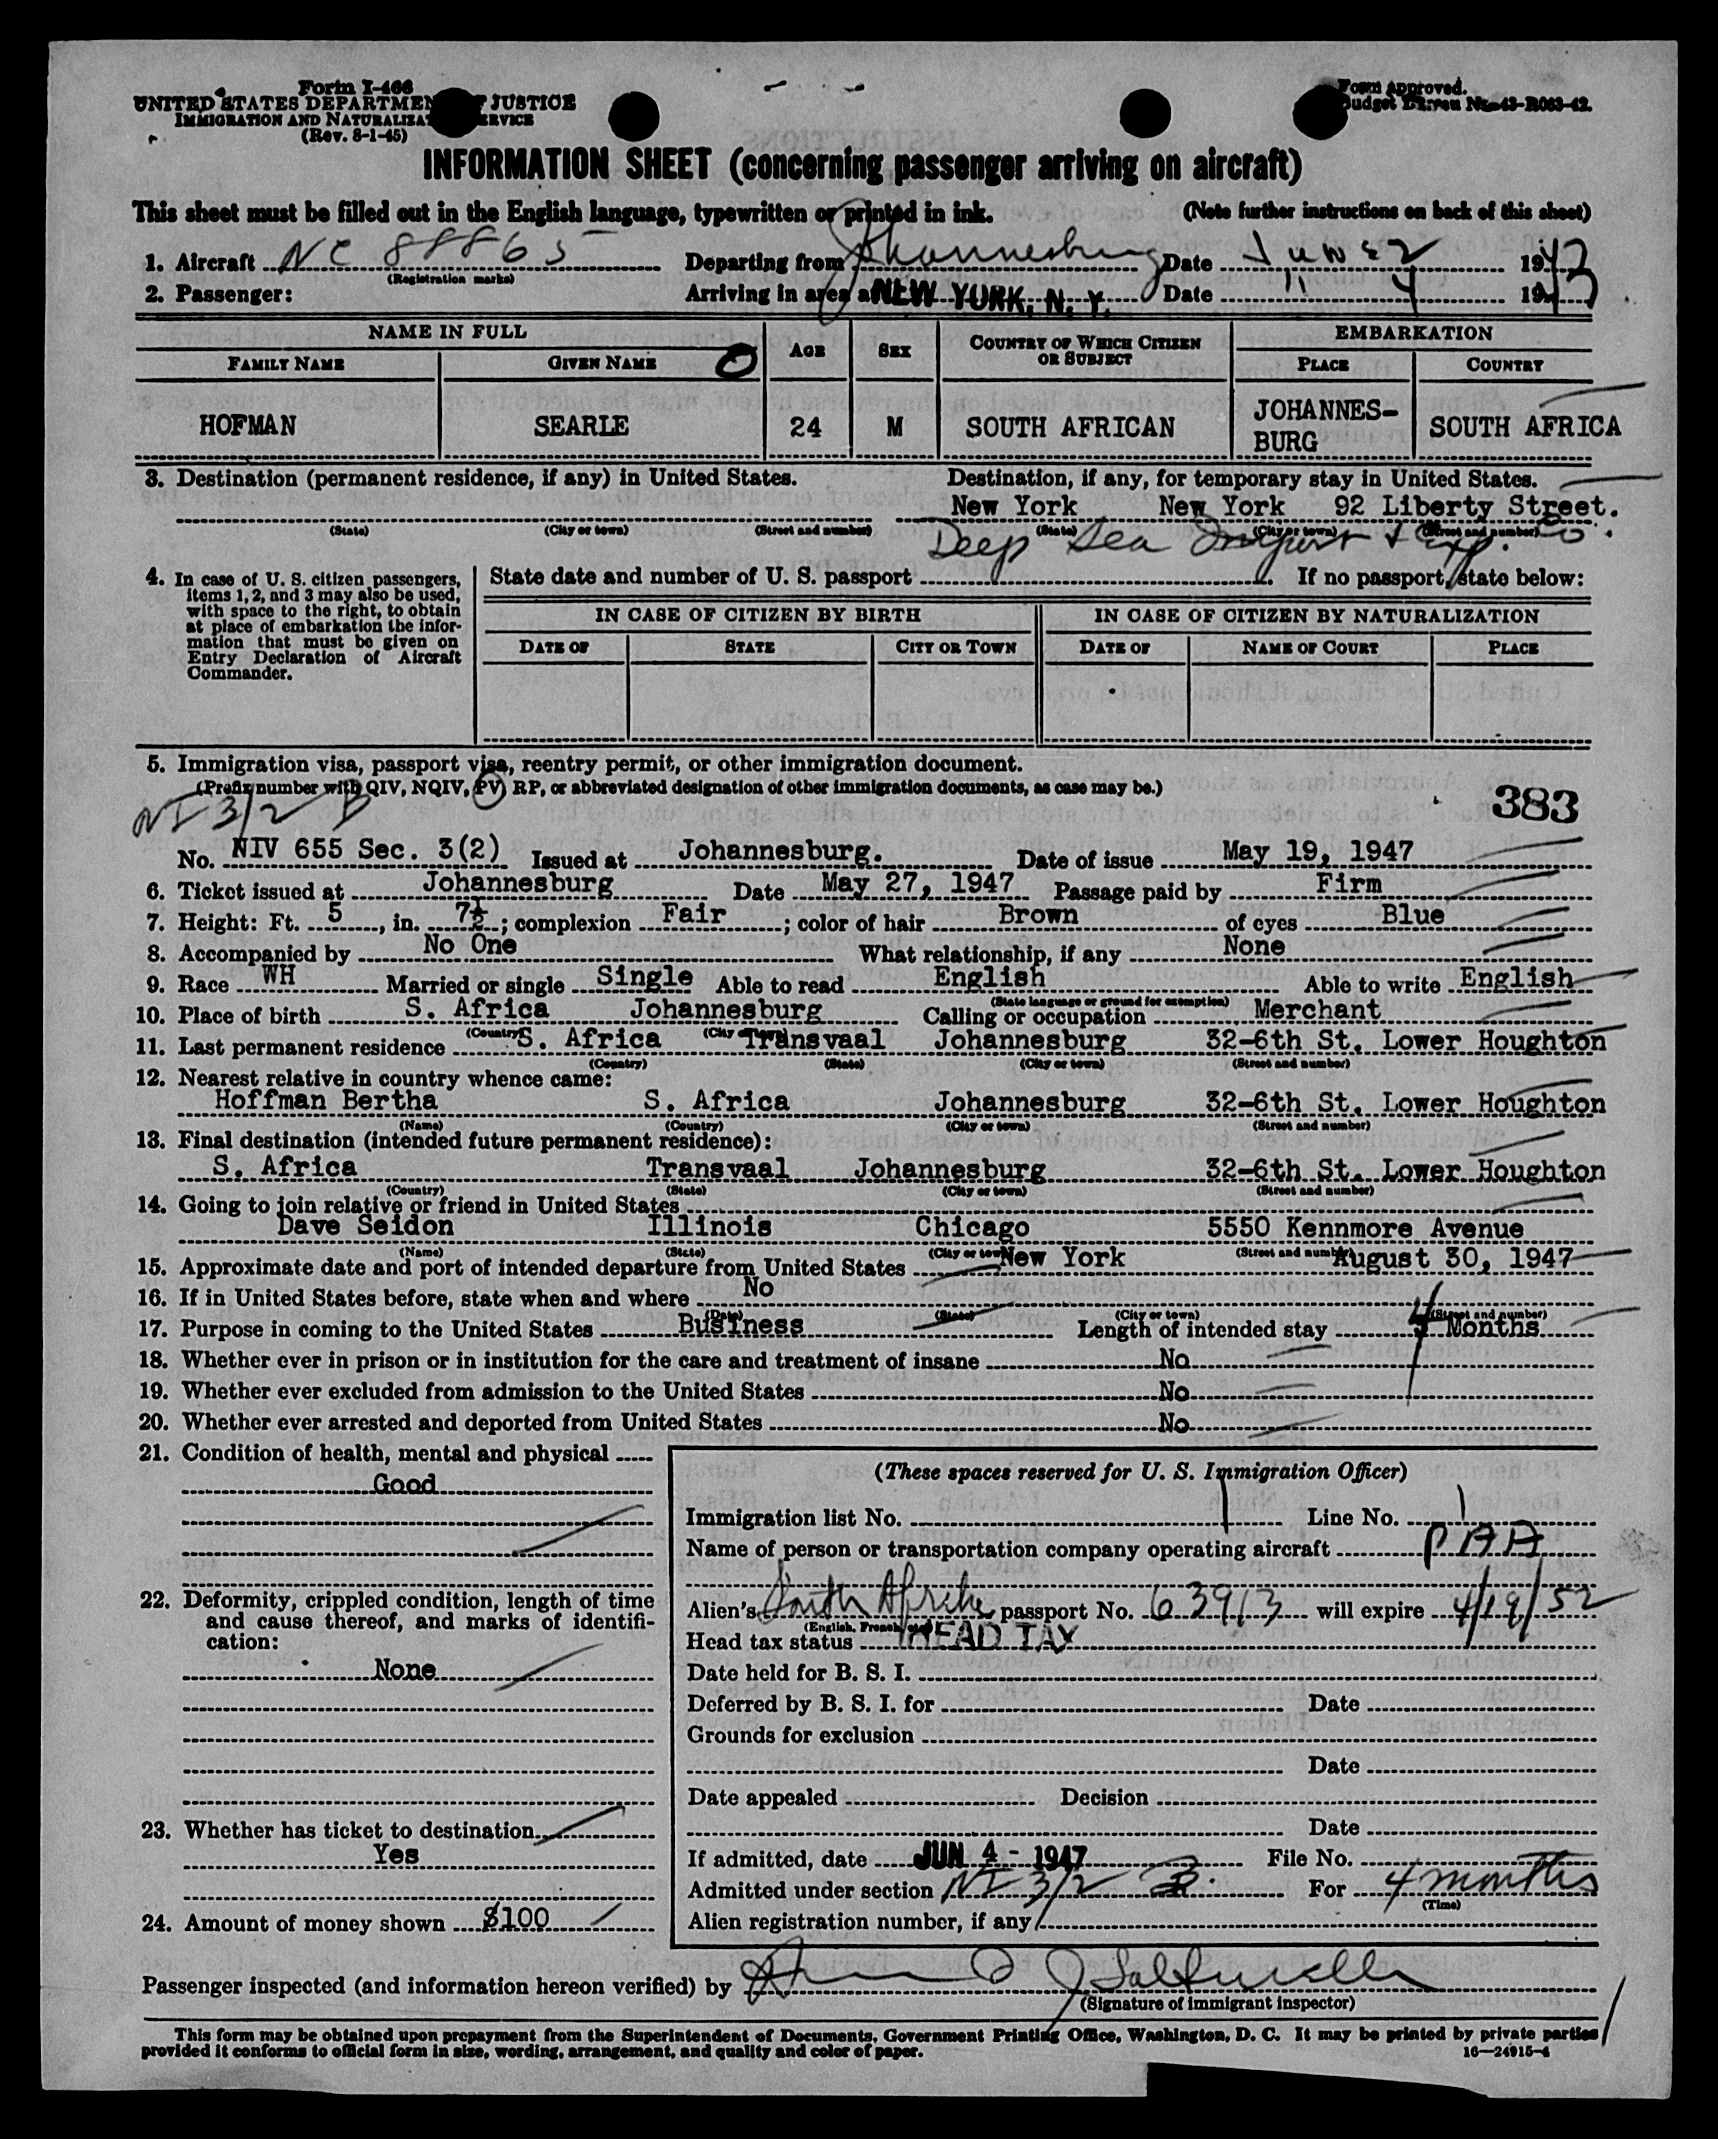 Form I-466
UNITED STATES DEPARTMENT OF JUSTICE
IMMIGRATION AND NATURALIZATION SERVICE
(Rev. 8-1-45)
Form Approved.
Budget Bureau No. 43-R063-42.
INFORMATION SHEET (concerning passenger arriving on aircraft)
This sheet must be filled out in the English language, typewritten or printed in ink. (Note further instructions on back of this sheet)
1. Aircraft NC 88865 Departing from Johannesburg Date June 2 1947
(Registration marks)
2. Passenger: Arriving in area at NEW YORK, N. Y. Date " 4 1947
NAME IN FULL AGE SEX COUNTRY OF WHICH CITIZEN OR SUBJECT EMBARKATION
FAMILY NAME GIVEN NAME PLACE COUNTRY
HOFMAN SEARLE 24 M SOUTH AFRICAN JOHANNES-BURG SOUTH AFRICA
3. Destination (permanent residence, if any) in United States. Destination, if any, for temporary stay in United States.
New York New York 92 Liberty Street.
(State) (City or town) (Street and number) (State) (City or town) (Street and number)
Deep Sea Import & Exp. Co.
4. In case of U. S. citizen passengers, items 1, 2, and 3 may also be used, with space to the right, to obtain at place of embarkation the information that must be given on Entry Declaration of Aircraft Commander.
State date and number of U. S. passport If no passport, state below:
IN CASE OF CITIZEN BY BIRTH IN CASE OF CITIZEN BY NATURALIZATION
DATE OF STATE CITY OR TOWN DATE OF NAME OF COURT PLACE
5. Immigration visa, passport visa, reentry permit, or other immigration document.
(Prefix number with QIV, NQIV, PV, RP, or abbreviated designation of other immigration documents, as case may be.)
NI 3/2 B
383
No. NIV 655 Sec. 3(2) Issued at Johannesburg. Date of issue May 19, 1947
6. Ticket issued at Johannesburg Date May 27, 1947 Passage paid by Firm
7. Height: Ft. 5, in. 7½; complexion Fair; color of hair Brown of eyes Blue
8. Accompanied by No One What relationship, if any None
9. Race WH Married or single Single Able to read English Able to write English
(State language or ground for exemption)
10. Place of birth S. Africa Johannesburg Calling or occupation Merchant
(Country) (City or Town)
11. Last permanent residence S. Africa Transvaal Johannesburg 32-6th St. Lower Houghton
(Country) (State) (City or town) (Street and number)
12. Nearest relative in country whence came:
Hoffman Bertha S. Africa Johannesburg 32-6th St. Lower Houghton
(Name) (Country) (City or town) (Street and number)
13. Final destination (intended future permanent residence):
S. Africa Transvaal Johannesburg 32-6th St. Lower Houghton
(Country) (State) (City or town) (Street and number)
14. Going to join relative or friend in United States
Dave Seidon Illinois Chicago 5550 Kennmore Avenue
(Name) (State) (City or town) (Street and number)
15. Approximate date and port of intended departure from United States New York August 30, 1947
16. If in United States before, state when and where No
(Date) (State) (City or town) (Street and number)
17. Purpose in coming to the United States Business Length of intended stay 4 Months
18. Whether ever in prison or in institution for the care and treatment of insane No
19. Whether ever excluded from admission to the United States No
20. Whether ever arrested and deported from United States No
21. Condition of health, mental and physical
Good
22. Deformity, crippled condition, length of time and cause thereof, and marks of identification:
None
23. Whether has ticket to destination
Yes
24. Amount of money shown $100
(These spaces reserved for U. S. Immigration Officer)
Immigration list No. 1 Line No. 1
Name of person or transportation company operating aircraft PAA
Alien's South Africa passport No. 63913 will expire 4/19/52
(English, French, etc.)
Head tax status HEAD TAX
Date held for B. S. I.
Deferred by B. S. I. for Date
Grounds for exclusion
Date
Date appealed Decision
Date
If admitted, date JUN 4 - 1947 File No.
Admitted under section NI 3/2 B. For 4 months
(Time)
Alien registration number, if any
Passenger inspected (and information hereon verified) by
(Signature of immigrant inspector)
This form may be obtained upon prepayment from the Superintendent of Documents, Government Printing Office, Washington, D. C. It may be printed by private parties
provided it conforms to official form in size, wording, arrangement, and quality and color of paper. 16—24915-4